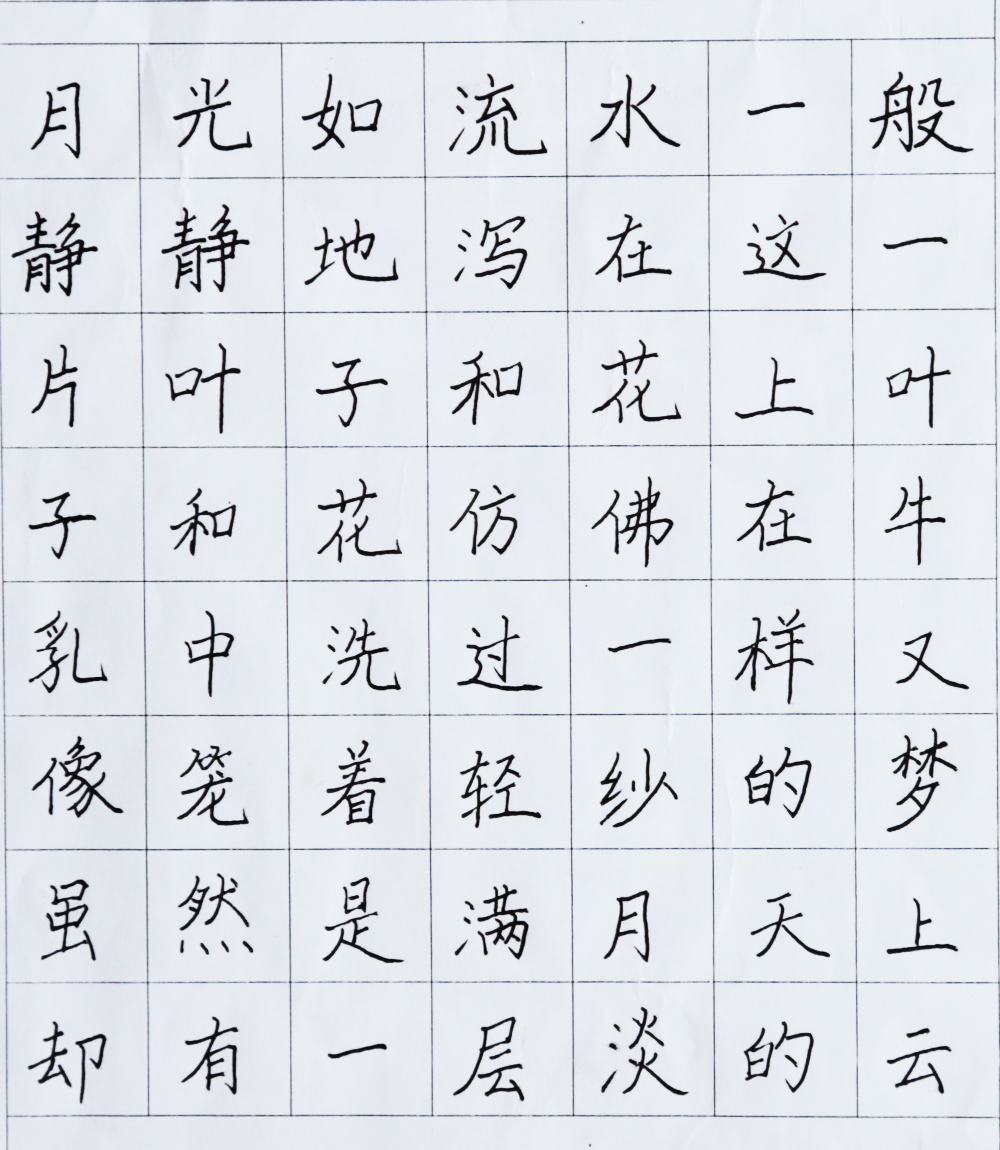 月光如流水一般
静静地泻在这一
片叶子和花上叶
子和花仿佛在牛
乳中洗过一样又
像笼着轻纱的梦
虽然是满月天上
却有一层淡的云